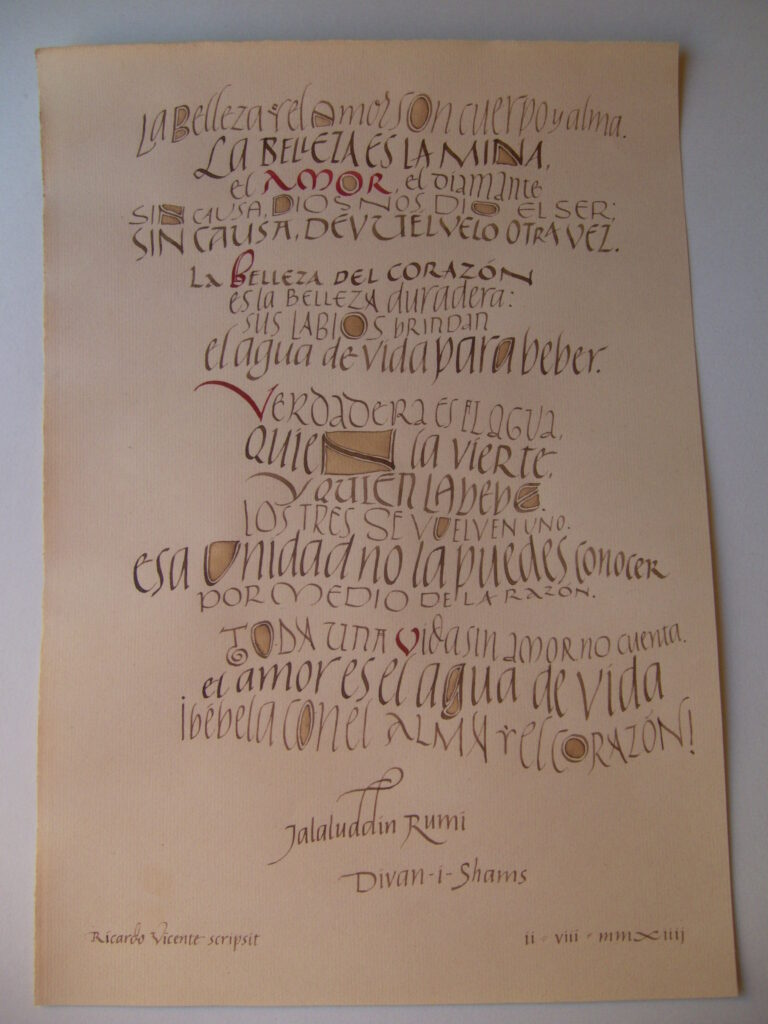 La Belleza y el Amor son cuerpo y alma.
La BELLEZA ES LA MINA,
el AMOR, el diamante
SIN CAUSA, DIOS NOS DIO EL SER;
SIN CAUSA, DEVUELVELO OTRA VEZ.
La BELLEZA DEL CORAZÓN
es la BELLEZA duradera:
SUS LABIOS brindan
el agua de vida para beber.
VERDADERA ES EL AGUA,
QUIEN la vierte,
Y QUIEN LA bebe.
LOS TRES SE VUELVEN UNO.
esa Unidad no la puedes conocer
POR MEDIO DE LA RAZÓN.
TODA UNA vida sin amor no cuenta.
el amor es el agua de vida
¡bébela con el ALMA y el CORAZÓN!
Jalaluddin Rumi
Divan-i-Shams
Ricardo Vicente scripsit
ii - viii - mmxiiij